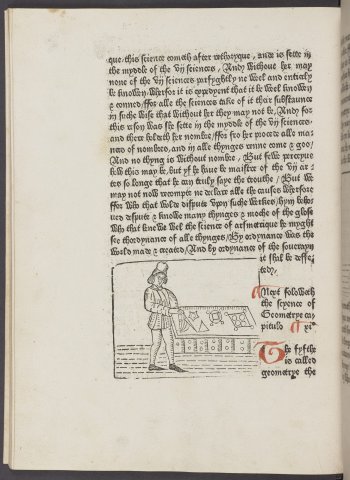 que. this science cometh after rethoryque, and is sette in
the myddle of the vij sciences, And without her may
none of the vij sciences parfyghtly ne wel and entierly
be knowen, Wherfor it is expedyent that it be wel knowen
& conned/ffor alle the sciences take of it their substaunce
in suche wise that without her they may not be, And for
this reson was she sette in the myddle of the vij sciences.
and there holdeth her nombre, ffor fro her procede alle ma
neres of nombres, and in alle thynges renne come & goo/
And no thyng is without nombre, But fewe perceyue
how this may be, but yf he haue be maistre of the vij ar
tes so longe that he can truly saye the trouthe/ But we
may not now recompte ne declare alle the causes wherfore
ffor who that wolde dispute vpon suche werkes/hym behou
ued dispute & knowe many thynges & moche of the glose
Who that knewe wel the science of arsmetrique he myght
see thordynance of alle thynges/By ordynance was the
world made & created/And by ordynance of the souerayn
it shal be deffe/
ted/
Next foloweth
the scyence of
Geometrye ca/
pitulo xi
The fyfthe
is called
geometrye the